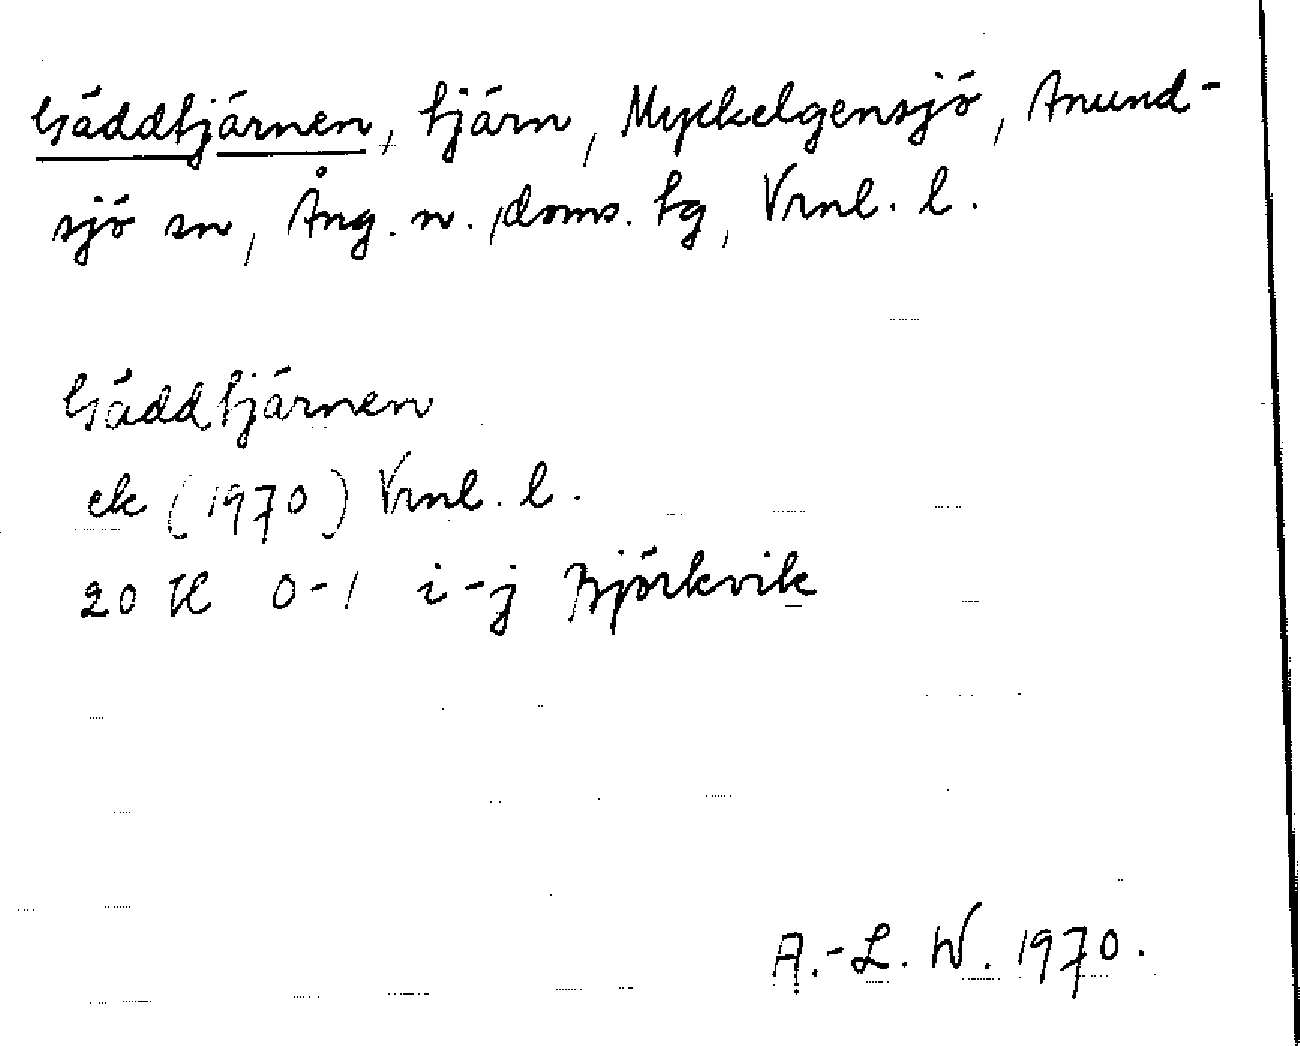 Gäddtjärnen, tjärn, Myckelgensjö, Anund-
sjö sn, Ång. n. doms. tg, Vrnl. l.
Gäddtjärnen
ek (1970) Vrnl. l.
20 H 0-1 i-j Björkvik
A.-L. W. 1970.